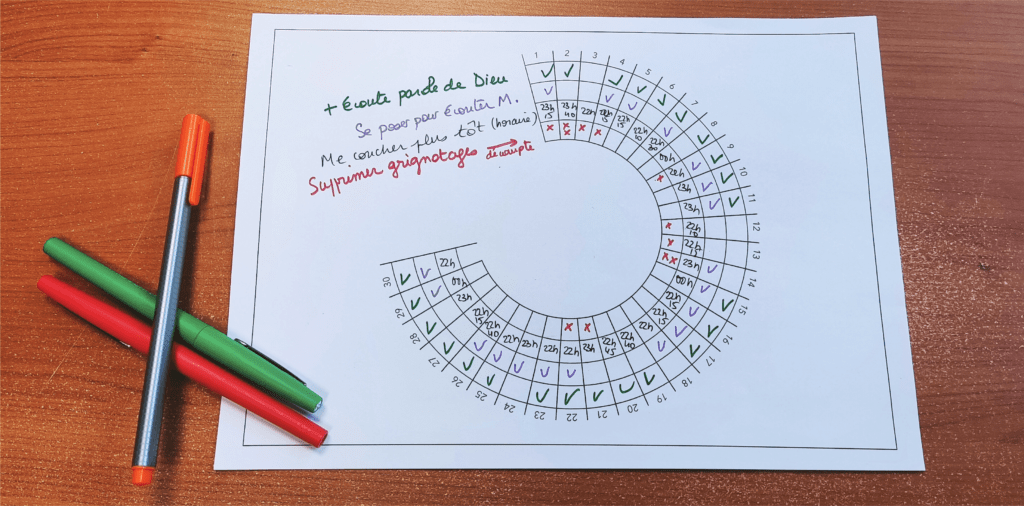 + Écoute parole de Dieu
Se poser pour écouter M.
Me coucher plus tôt (horaire)
Supprimer grignotages décompte
1 2 3 4 5 6 7 8 9 10 11 12 13 14 15 16 17 18 19 20 21 22 23 24 25 26 27 28 29 30
23h15
23h40
22h
22h15
22h15
22h10
00h
22h
23h
23h
22h10
22h15
23h
00h
22h15
22h15
22h
22h40
22h45
23h
22h
22h
23h
22h
22h40
22h15
23h
00h
22h